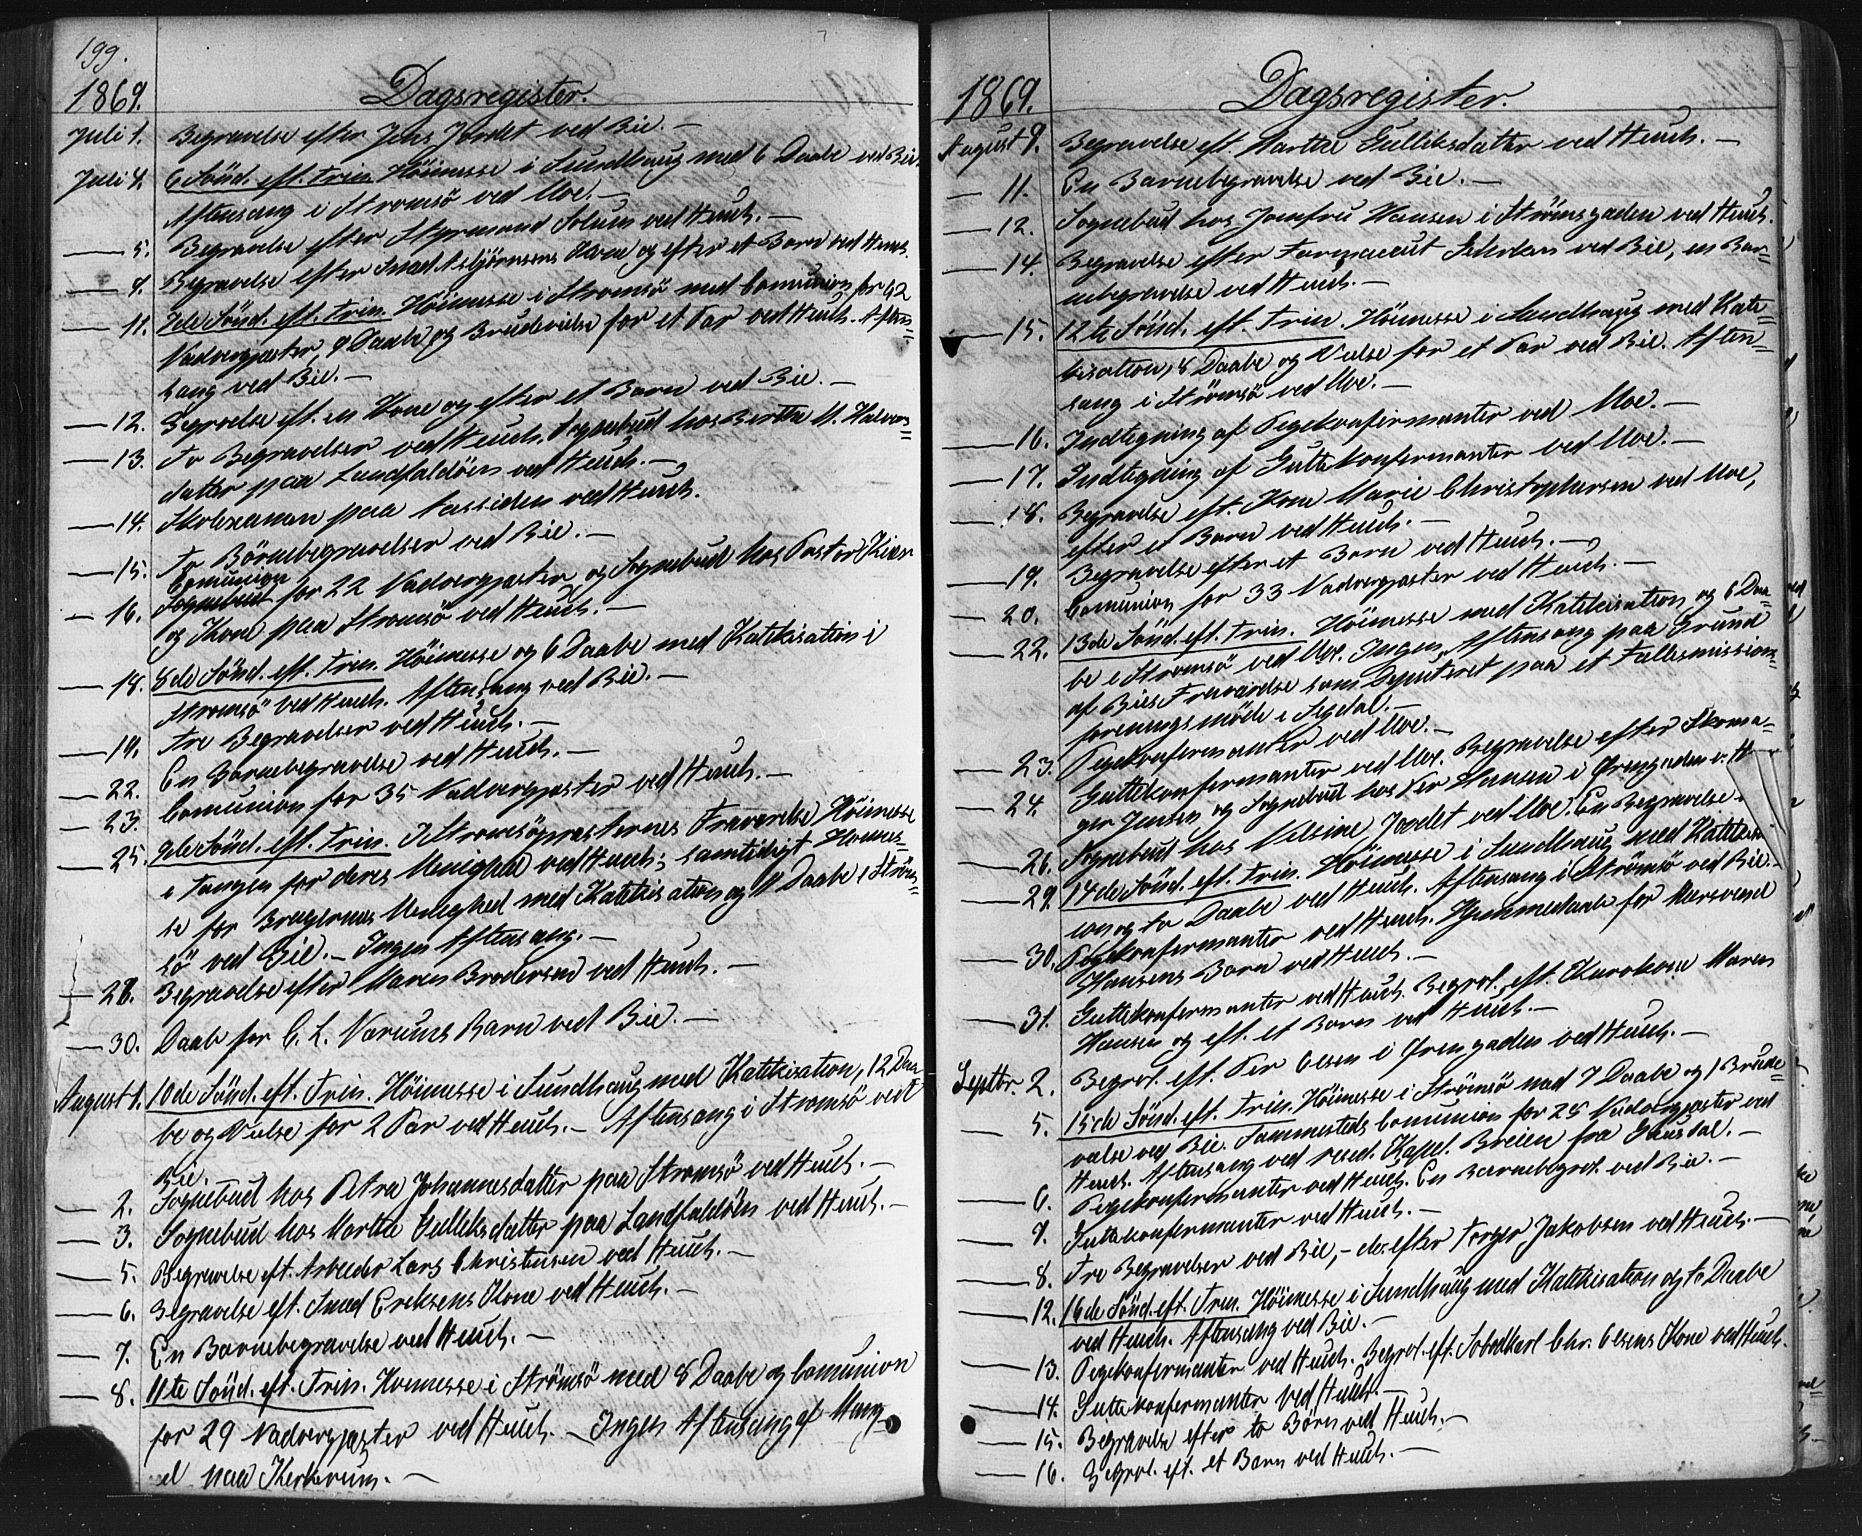 199.
1869. Dagsregister.
Juli 1. Begravelse efter Jens Jordet ved Bie. —
Juli 4. 6 Sönd. eft. Trin. Höimesse i Sundhaug med 6 Daabe ved Bie.
Aftensang i Stromsö ved Moe. —
— 5. Begravelse efter Styrmand Solum ved Huuch. —
— 9. Begravelse efter Smed Asbjörnsens Kone og efter et Barn ved Huuch.
— 11. 7de Sönd. eft. Trin. Höimesse i Stromsö med Comunion for 42
Nadvergjæster, 9 Daabe og Brudevielse for et Par ved Huuch. Aften=
sang ved Bie. —
— 12. Begravelse eft. en Kone og efter et Barn ved Bie. —
— 13. To Begravelser ved Huuch. Sognebud hos Berthe M. Halvors=
datter paa Landfaldöen ved Huuch. —
— 14. Skolexamen paa Aassiden ved Huuch.
— 15. To Börnebegravelser ved Bie. —
— 16. Comunion for 22 Nadvergjæster og Sognebud hos Pastor Kiær
og Kone paa Stromsö ved Huuch. —
— 18. 8de Sönd. eft. Trin. Höimesse og 6 Daabe med Katekisation i
Stromsö ved Huuch. Aftensang ved Bie. —
— 19. Tre Begravelser ved Huuch. —
— 22. En Barnebegravelse ved Huuch. —
— 23. Comunion for 35 Nadvergjæster ved Huuch. —
— 25. 9de Sönd. eft. Trin. I Stromsöpræsternes Fraværelse Höimesse
i Tangen for deres Menighed ved Huuch; samtidigt Höimes=
se for Bragernes Menighed med Katekisation og 11 Daabe i Ström=
sö ved Bie. — Ingen Aftensang. —
— 28. Begravelse efter Maren Brodersen ved Huuch. —
— 30. Daab for C. L. Nærums Barn ved Bie. —
August 1. 10de Sönd. eft. Trin. Höimesse i Sundhaug med Katekisation, 12 Daa=
be og Vielse for 2 Par ved Huuch. — Aftensang i Stromsö ved
Bie. —
— 2. Sognebud hos Petra Johannesdatter paa Stromsö ved Huuch. —
— 3. Sognebud hos Marthe Gulliksdatter paa Landfaldöen ved Huuch. —
— 5. Begravelse eft. Arbeider Lars Christensen ved Huuch. —
— 6. Begravelse eft. Smed Eriksens Kone ved Huuch. —
— 7. En Barnebegravelse ved Huuch. —
— 8. 11te Sönd. eft. Trin. Hoimesse i Strömsö med 8 Daabe og Comunion
for 29 Nadvergjæster ved Huuch. — Ingen Aftensang af Mang
el paa Kirkerum. —
1869. Dagsregister.
August 9. Begravelse eft. Marthe Gulliksdatter ved Huuch. —
— 11. En Barnebegravelse ved Bie. —
— 12. Sognebud hos Jomfru Hansen i Strömsgaden ved Huuch.
— 14. Begravelse efter Farmaceut ved Bie, en Bar=
nebegravelse ved Huuch. —
— 15. 12te Sönd. eft. Trin. Höimesse i Sundhaug med Kate=
kisation, 8 Daabe og Vielse for et Par ved Bie. Aften=
sang i Strömsö ved Moe. —
— 16. Indtegning af Pigekonfirmanter ved Moe. —
— 17. Indtegning af Guttekonfirmanter ved Moe. —
— 18. Begravelse eft. Kone Marie Christophersen ved Moe,
efter et Barn ved Huuch. —
— 19. Begravelse efter et Barn ved Huuch. —
— 20. Comunion for 33 Nadvergjæster ved Huuch. —
— 22. 13de Sönd. eft. Trin. Höimesse med Katekisation og 6 Daa=
be i Stromsö ved Moe. Ingen Aftensang paa Grund
af Bies Fraværelse som Deputeret paa et Fællesmissions=
foreningsmöde i Sigdal. —
— 23. Pigekonfirmanter ved Moe. —
— 24. Guttekonfirmanter ved Moe. Begravelse efter Skoma=
ger Jensen og Sognebud hos Per Hansen i Örengaden v. H
— 26. Sognebud hos Nilsine Jordet ved Moe. En Begravelse
— 29. 14de Sönd. eft. Trin. Höimesse i Sundhaug med Katekisa
tion og to Daabe ved Huuch. Aftensang i Strömsö ved Bie. —
— 30. Pigekonfirmanter ved Huuch. Hjemmedaab for Mersvend
Hansens Barn ved Huuch. —
— 31. Guttekonfirmanter ved Huuch. Begrav. eft. Maren
Hansen og eft. et Barn ved Huuch. —
Septbr. 2. Begrav. eft. Per Olsen i Örengaden ved Huuch. —
— 5. 15de Sönd. eft. Trin. Höimesse i Strömsö med 7 Daabe og 1 Brude=
vielse ved Bie. Sammesteds Comunion for 28 Nadvergjæster ved
Huuch. Aftensang ved resid. Kapel. Breien fra Gausdal. —
— 6. Pigekonfirmanter ved Huuch. En Barnebegrav. ved Bie. —
— 7. Guttekonfirmanter ved Huuch. —
— 8. Tre Begravelser ved Bie, — do. efter Torger Jakobsen ved Huuch. —
— 12. 16de Sönd. eft. Trin. Höimesse i Sundhaug med Katekisation og to Daabe
ved Huuch. Aftensang ved Bie. —
— 13. Pigekonfirmanter ved Huuch. Begrav. eft. Chr. Olsens Kone ved Huuch.
— 14. Guttekonfirmanter ved Huuch. —
— 15. Begravelse efter to Börn ved Huuch. —
— 16. Begrav. eft. et Barn ved Huuch. —